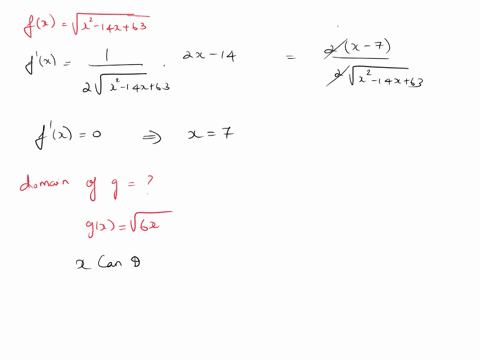 f(x) = √(x²-14x+63)
f'(x) = 1 / (2√(x²-14x+63)) · 2x-14 = 2(x-7) / (2√(x²-14x+63))
f'(x) = 0 ⇒ x = 7
domain of g = ?
g(x) = √(6x)
x can